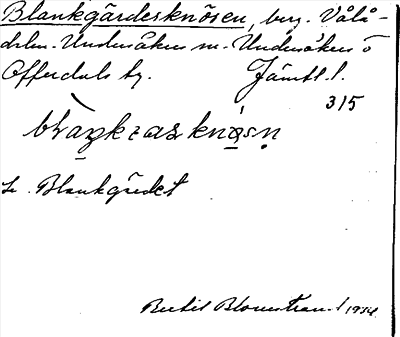 Blankgärdesknösen, berg. Vålå-
dalen. Undersåkers sn. Undersåkers o
Offerdals tg. Jämtl. l.
315
Se. Blankgärdet
Bertil Blomstrand 1934